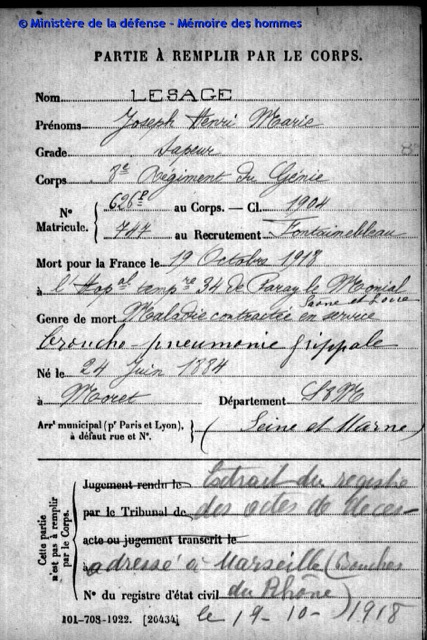 © Ministère de la défense - Mémoire des hommes
PARTIE À REMPLIR PAR LE CORPS.
Nom LESAGE
Prénoms Joseph Henri Marie
Grade Sapeur
Corps 8e Régiment du Génie
N° Matricule. 6268 au Corps. — Cl. 1904
747 au Recrutement Fontainebleau
Mort pour la France le 19 Octobre 1918
à l'Hopal tempre 34 de Paray le Monial
Saone et Loire
Genre de mort Maladie contractée en service
broncho-pneumonie grippale
Né le 24 Juin 1884
à Moret Département S&M
Arrt municipal (pr Paris et Lyon), à défaut rue et N°. (Seine et Marne)
Cette partie n'est pas à remplir par le Corps.
Jugement rendu le Extrait du registre
par le Tribunal de des actes de décès
acte ou jugement transcrit le
à adressé à Marseille (Bouches
N° du registre d'état civil du Rhône)
le 19-10-1918
101-708-1922. [26434]